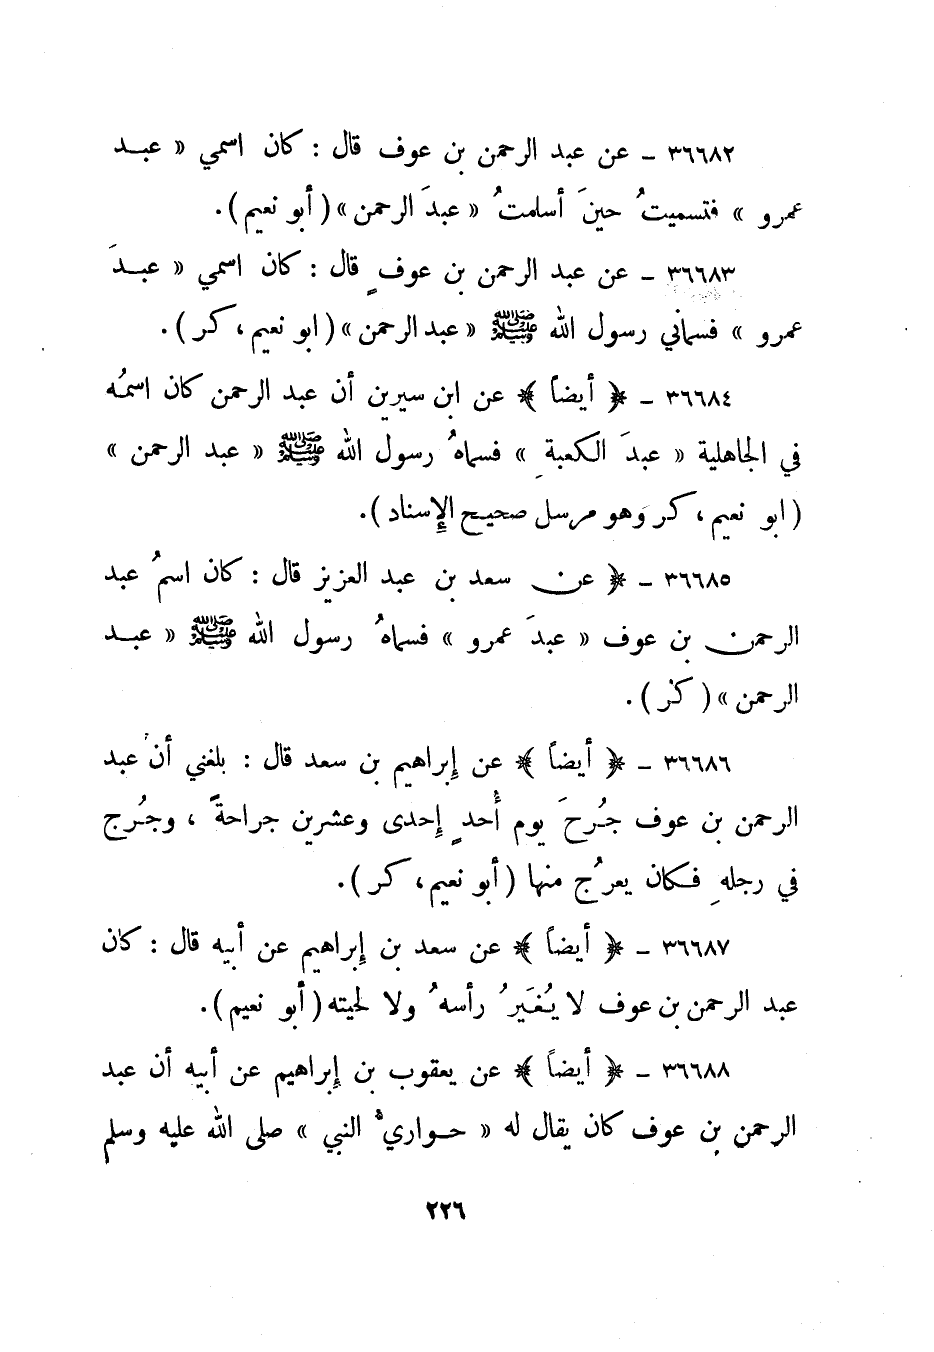 ٣٦٦٨٢ ـ عن عبد الرحمن بن عوف قال : كان اسمي « عبـد
عمرو » فتسميتُ حينَ أسلمتُ « عبدَ الرحمن » ( أبو نعيم ) .
٣٦٦٨٣ ـ عن عبد الرحمن بن عوفٍ قال : كان اسمي « عبـدَ
عمرو » فسماني رسول الله ﷺ « عبد الرحمن » ( ابو نعيم ، كر ) .
٣٦٦٨٤ ـ ﴿ أيضاً ﴾ عن ابن سيرين أن عبد الرحمن كان اسمُه
في الجاهلية « عبدَ الكعبةِ » فسماهُ رسول الله ﷺ « عبد الرحمن »
( ابو نعيم ، كر وهو مرسل صحيح الإسناد ) .
٣٦٦٨٥ ـ ﴿ عن سعد بن عبد العزيز قال : كان اسمُ عبد
الرحمن بن عوف « عبدَ عمرو » فسماهُ رسول الله ﷺ « عبـد
الرحمن » ( كر ) .
٣٦٦٨٦ ـ ﴿ أيضاً ﴾ عن إبراهيم بن سعد قال : بلغني أن عبد
الرحمن بن عوف جُرحَ يوم أُحدٍ إحدى وعشرين جراحةً ، وجُرح
في رجلهِ فكان يعرُج منها ( أبو نعيم ، كر ) .
٣٦٦٨٧ ـ ﴿ أيضاً ﴾ عن سعد بن إبراهيم عن أبيه قال : كان
عبد الرحمن بن عوف لا يُغَيرُ رأسهُ ولا لحيته ( أبو نعيم ) .
٣٦٦٨٨ ـ ﴿ أيضاً ﴾ عن يعقوب بن إبراهيم عن أبيه أن عبد
الرحمن بن عوف كان يقال له « حواريُّ النبي » صلى الله عليه وسلم
٢٢٦